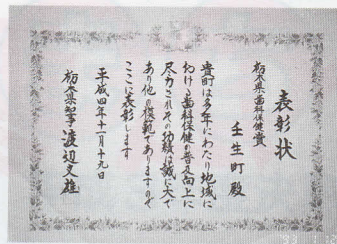 表彰状
栃木県歯科保健賞
壬生町殿
貴町は多年にわたり地域に
おける歯科保健の普及向上に
尽力されその功績は誠に大で
あり他の模範でありますので
ここに表彰します
平成四年十一月十九日
栃木県知事渡辺文雄